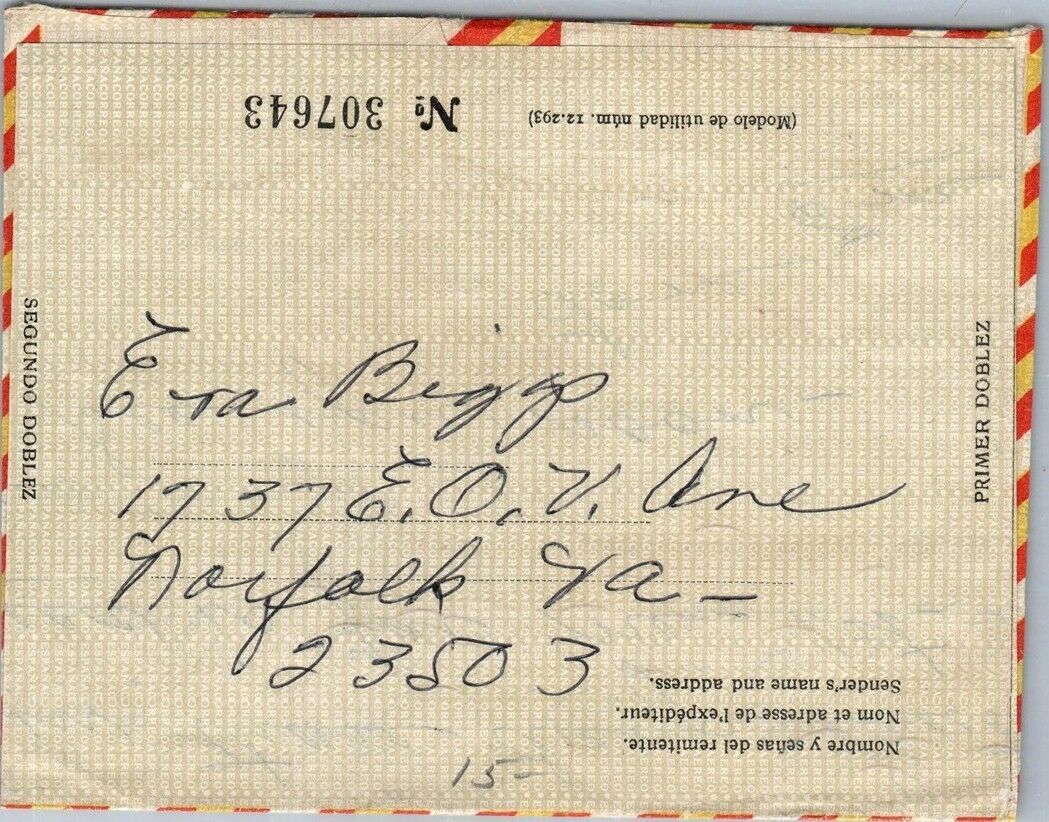 (Modelo de utilidad núm. 12.293)
Nº 307643
SEGUNDO DOBLEZ
PRIMER DOBLEZ
Eva Biggs
1737 E. O. V. Ave
Norfolk Va –
23503
Nombre y señas del remitente.
Nom et adresse de l'expéditeur.
Sender's name and address.
15–